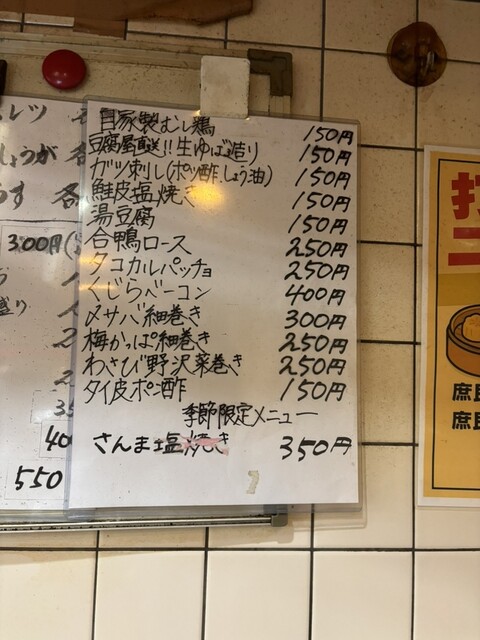 自家製むし鶏 150円
豆腐屋直送!!生ゆば造り 150円
ガツ刺し(ポン酢、しょう油) 150円
鮭皮塩焼き 150円
湯豆腐 150円
合鴨ロース 250円
タコカルパッチョ 250円
くじらベーコン 400円
〆サバ細巻き 300円
梅かっぱ細巻き 250円
わさび野沢菜巻き 250円
タイ皮ポン酢 150円
季節限定メニュー
さんま塩焼き 350円
レツ
しょうが 各
各
300円(
盛り
35
40
550
打
庶民
庶民